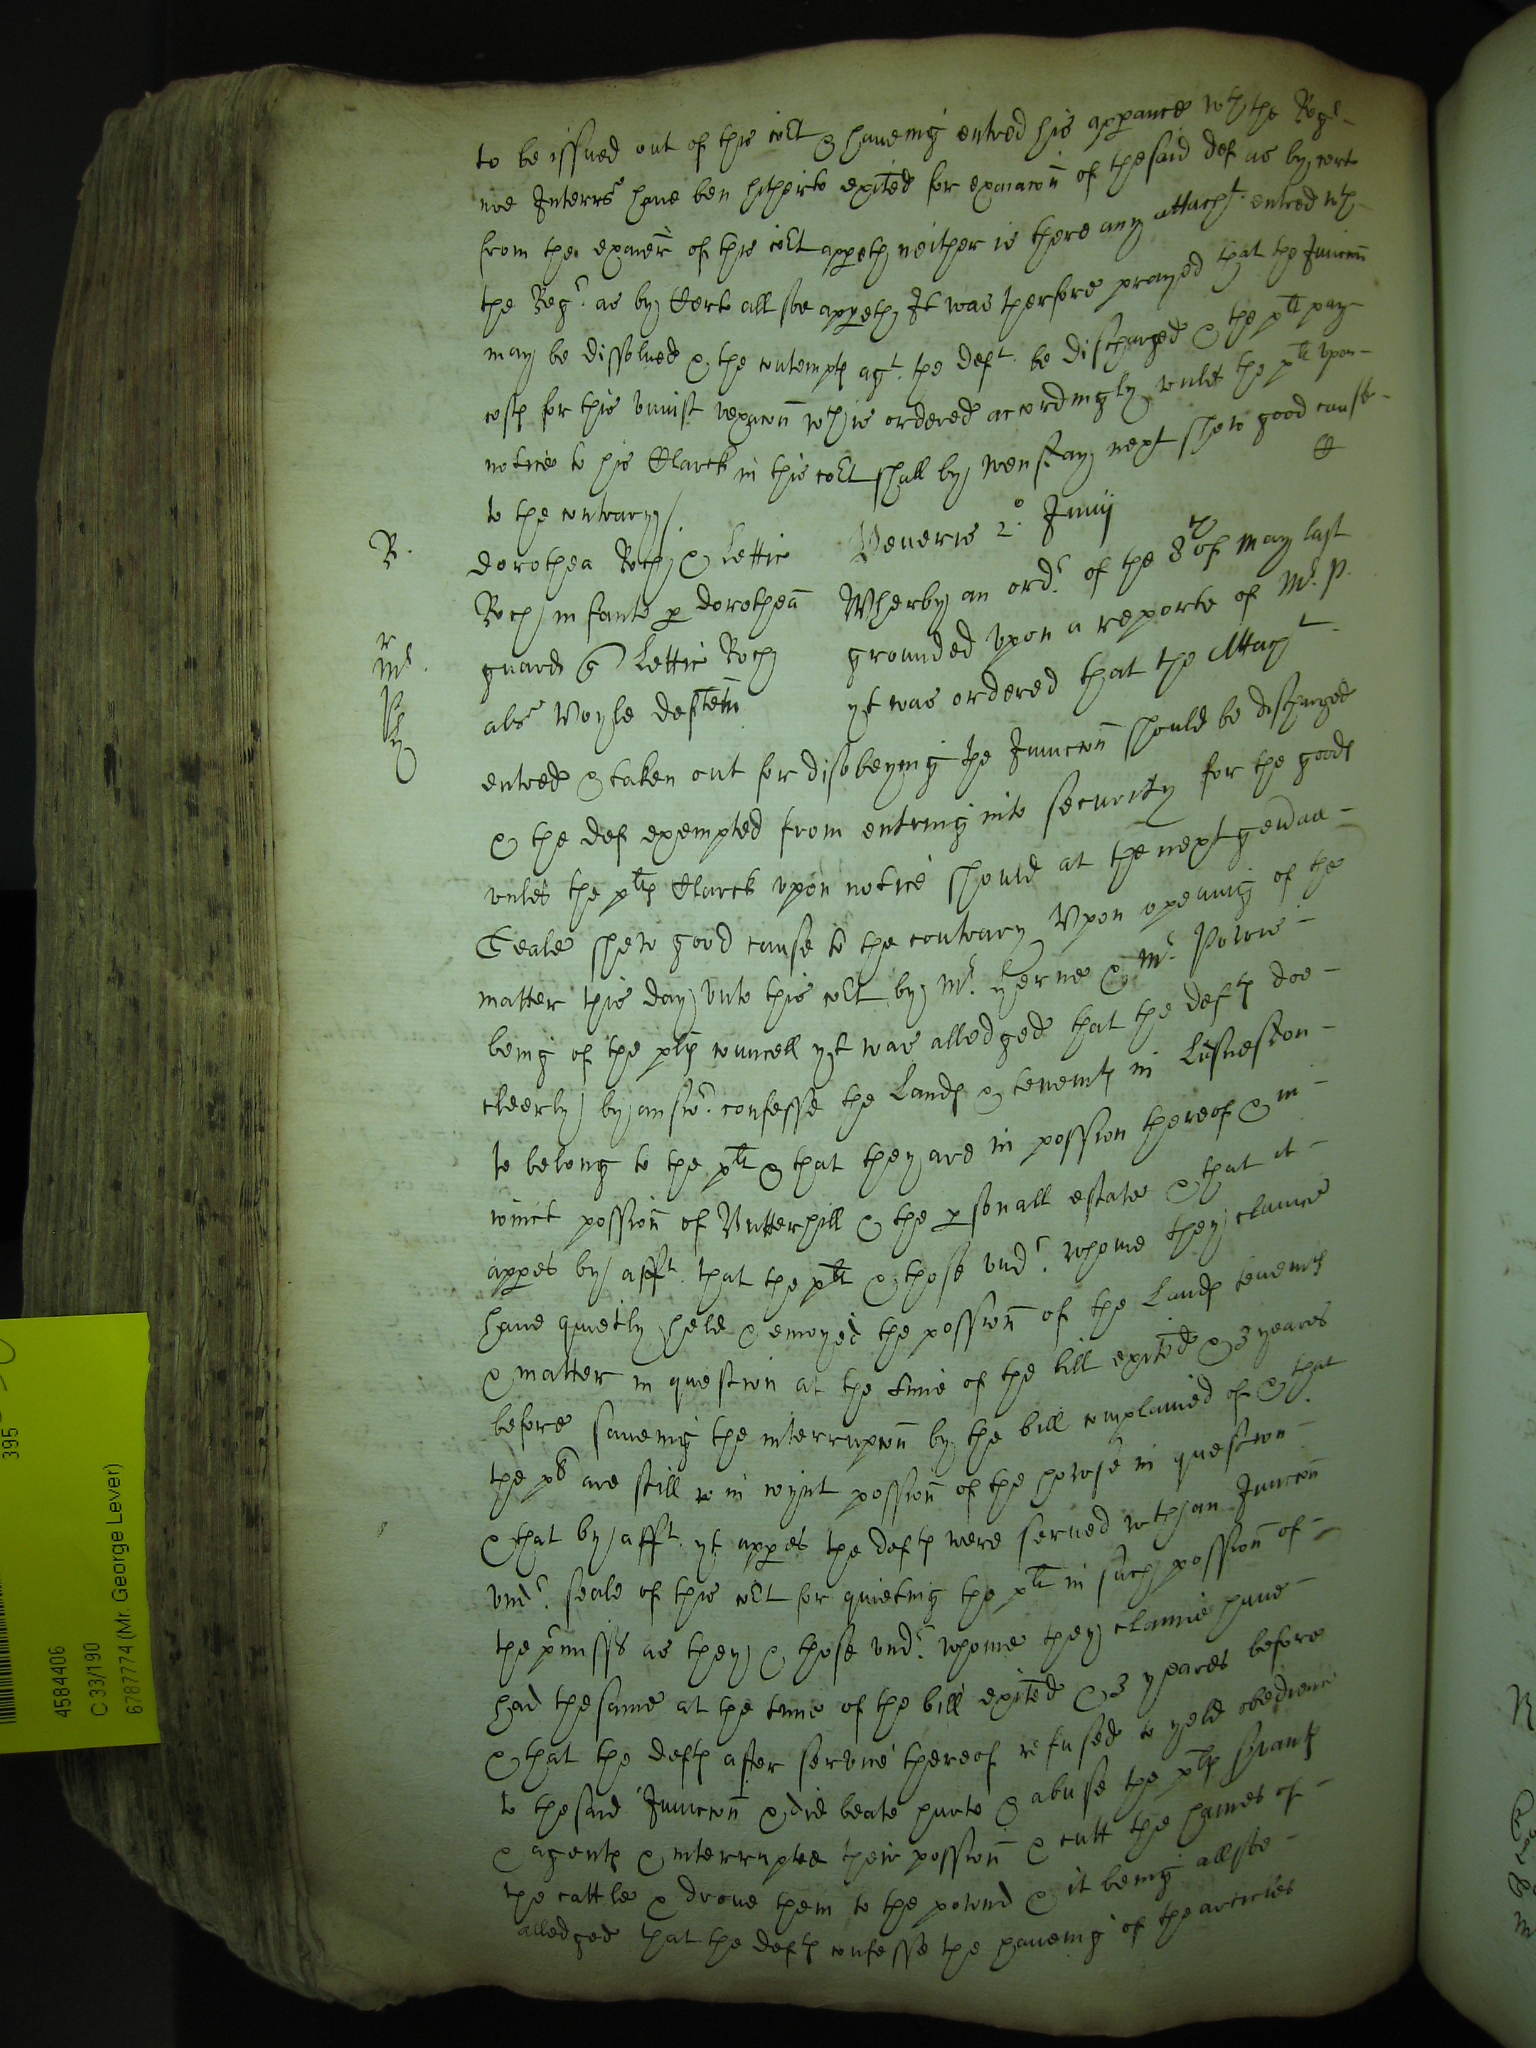 to be issued out of this cort & haveing entred his appance wth the Regr
noe Interrs have ben hitherto exited for exaiacon of the said def as by cert
from the exaier of this cort appeth neither is there any attacht. entred wth
the Regr. as by Cert allsoe appeth It was therfore prayed that the Iniuncon
may be dissolved & the contempt agt. the deft. be discharged & the plt pay
costs for this uniust vexacon wch is ordered accordingly unles the plt upon
notice to his Clarck in this cort shall by wensday next shew good cause
to the contrary
R. Dorothea Roch & Lettic Veneris 2o. Junij
Roch infants p Dorothea Wherby an ordr. of the 8th of May last
guard & Lettic Roch grounded upon a reporte of Mr. P.
als Voyle deften yt was ordered that the Attacht
entred & taken out for disobeying the Iniuncon should be discharged
& the def exempted from entring into security for the goods
unles the plts Clarck upon notice should at the next genall
Seale shew good cause to the contrary Upon opening of the
matter this day unto this cort by Mr. Herne & Mr. Powis
being of the plts councell yt was alledged that the defts doe
cleerly by answr. confesse the Lands & tenemts in
to belong to the plt & that they are in possion thereof & in
ioinct possion of Butterhill & the psonall estate & that it
appes by afft. that the plt & those undr. whome they clame
have quietly held & enioyed the possion of the Lands tenemts
& matter in question at the time of the bill exited & 3 yeares
before saveing the interrupcon by the bill complained of & that
the pls are still in ioynt possion of the howse in question
& that by afft. yt appes the defts were served with an Iniuncon
undr. seale of this cort for quieting the plt in such possion of
the pmisss as they & those undr. whome they clamie have
had the same at the time of the bill exited & 3 yeares before
& that the defts after service thereof refused to yeld obedience
to the said Iniuncon & did beate hurte & abuse the plts svants
& agents & interrupted their possion & cutt the hames of
the cattle & drove them to the pownd & it being allsoe
alledged that the defts confesse the haveing of the articles
395
4584406
C 33/190
6787774 (Mr. George Lever)